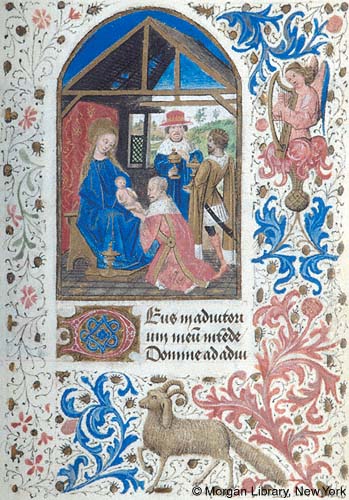 DEus in adiutori
um meū intēde
Domine ad adiu
© Morgan Library, New York